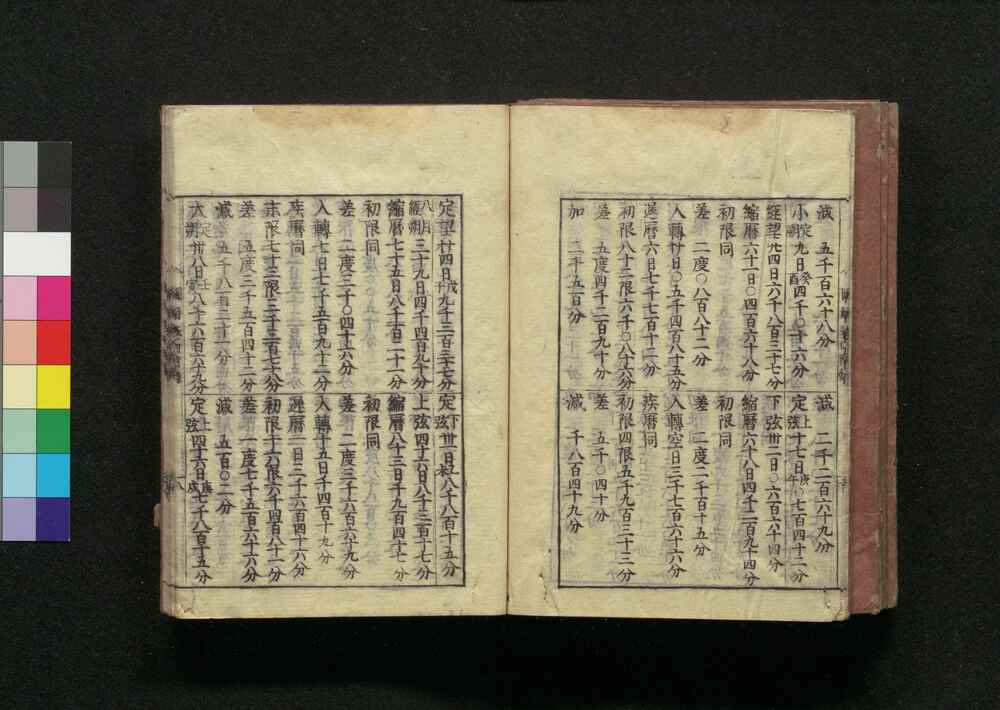 減 五千百六十八分
小定朔九日癸酉四千〇十六分
經望廿四日六千八百三十七分
縮曆六十一日〇四百六十八分
初限同
差 二度〇八百八十二分
入轉廿日〇五千四百八十五分
遲曆六日七千七百十二分
初限八十二限六千〇八十六分
差 五度四千二百九十分
加 二千五百分
減 二千二百六十九分
定上弦十七日庚午〇七百四十二分
下弦卅一日〇六百六十四分
縮曆六十八日四千二百九十四分
初限同
差 二度二千百十五分
入轉空日三千七百六十六分
疾曆同
初限四限五千九百三十二分
差 五千〇四十分
減 千八百四十九分
定望廿四日戊子九千三百三十七分
八月經朔三十九日四千四百九十分
縮曆七十五日八千百二十一分
初限同
差 二度三千〇四十六分
入轉七日七千五百九十二分
疾曆同
末限七十三限三千三百七十分
差 五度三千五百四十二分
減 五千八百二十一分
大定朔卅八日壬寅八千六百六十九分
定下弦卅一日乙未八千八百十五分
上弦四十六日八千三百十七分
縮曆八十三日千九百四十七分
初限同
差 二度三千六百六十九分
入轉十五日千四百十九分
遲曆一日二千六百四十六分
初限十六限六千四百八十一分
差 一度七千五百六十六分
減 五百〇二分
定上弦四十六日庚戌七千八百十五分